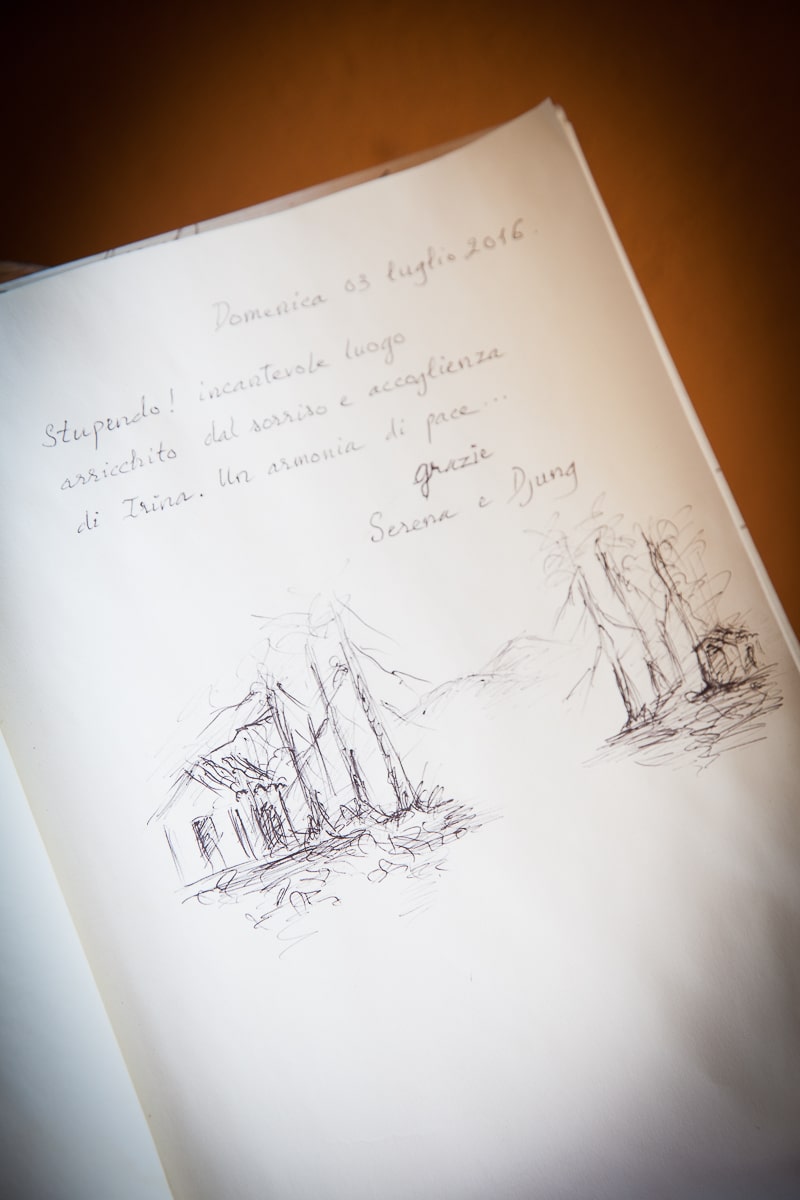 Domenica 03 luglio 2016.
Stupendo! incantevole luogo
arricchito dal sorriso e accoglienza
di Irina. Un armonia di pace...
grazie
Serena e Djung